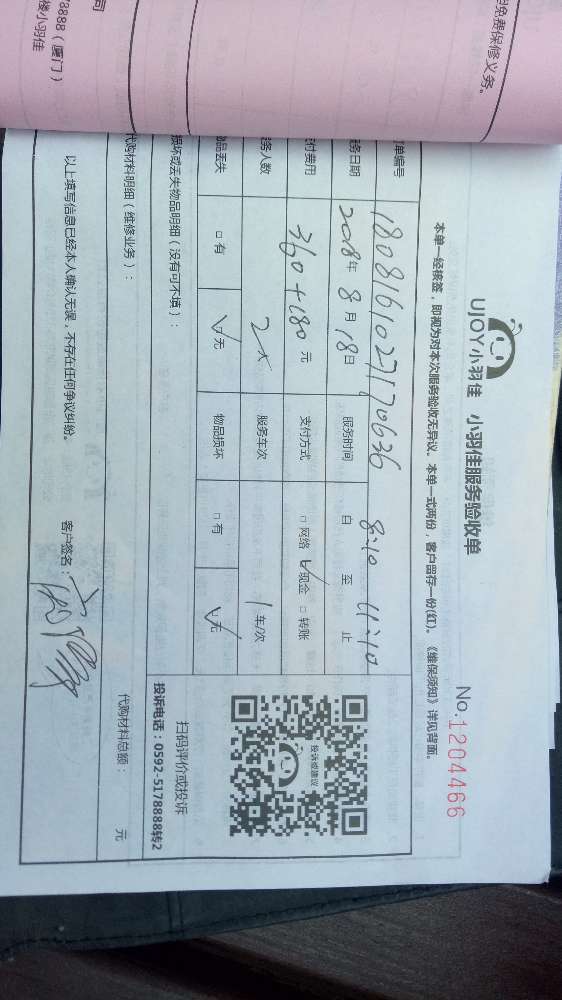 UJOY小羽佳 小羽佳服务验收单
No.1204466
本单一经核签，即视为对本次服务验收无异议。本单一式两份，客户留存一份(红)。《维保须知》详见背面。
单编号 1808161027170636
务日期 2018年 8 月 18日 服务时间 自 8:10 至 11:10 止
付费用 360+180 元 支付方式 □ 网络 ☑现金 □ 转账
务人数 2人 服务车次 1 车/次
物品丢失 □ 有 ☑无 物品损坏 □ 有 ☑无
投诉或建议
扫码评价或投诉
投诉电话：0592-5178888转2
损坏或丢失物品明细（没有可不填）：
代购材料明细（维修业务）：
代购材料总额： 元
以上填写信息已经本人确认无误，不存在任何争议纠纷。
客户签名：
免费保修义务。
司
8888（厦门）
小羽佳